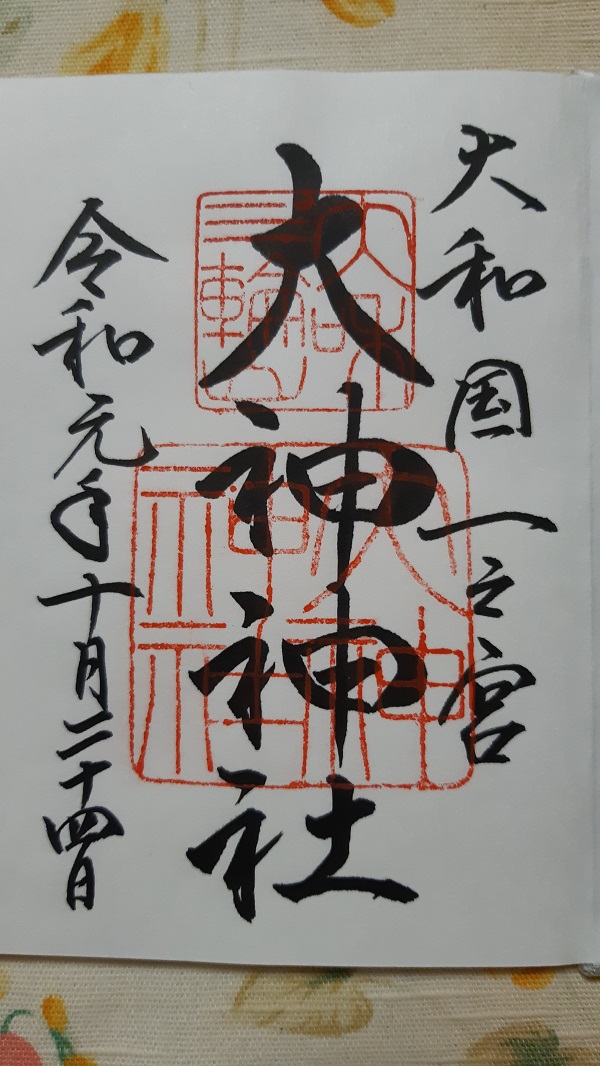 大和国一之宮
大神神社
令和元年十月二十四日
大和
三輪山
大神
神社